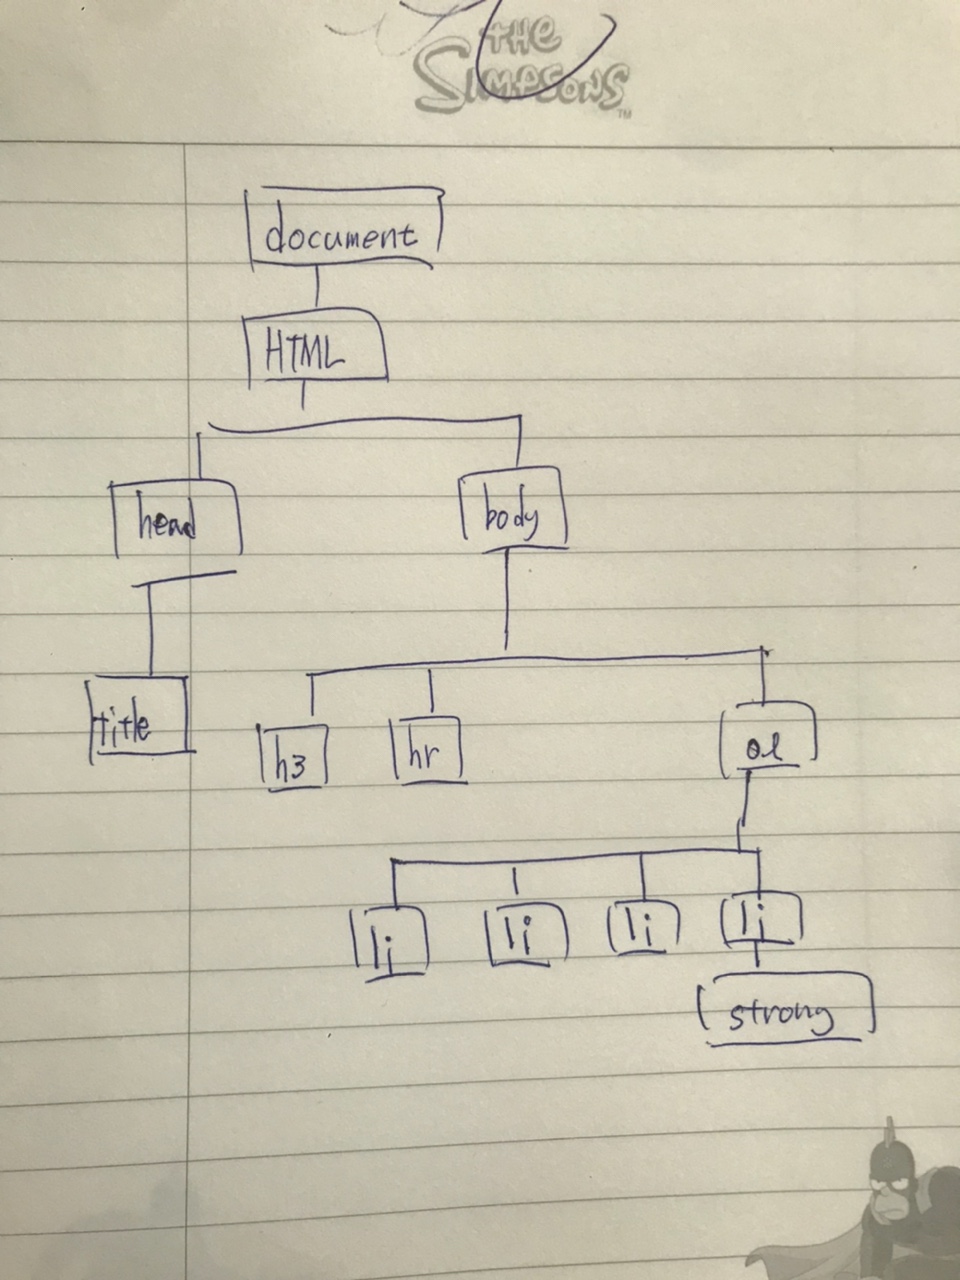 THE
SIMPSONS
TM
document
HTML
head body
title h3 hr ol
li li li li
strong